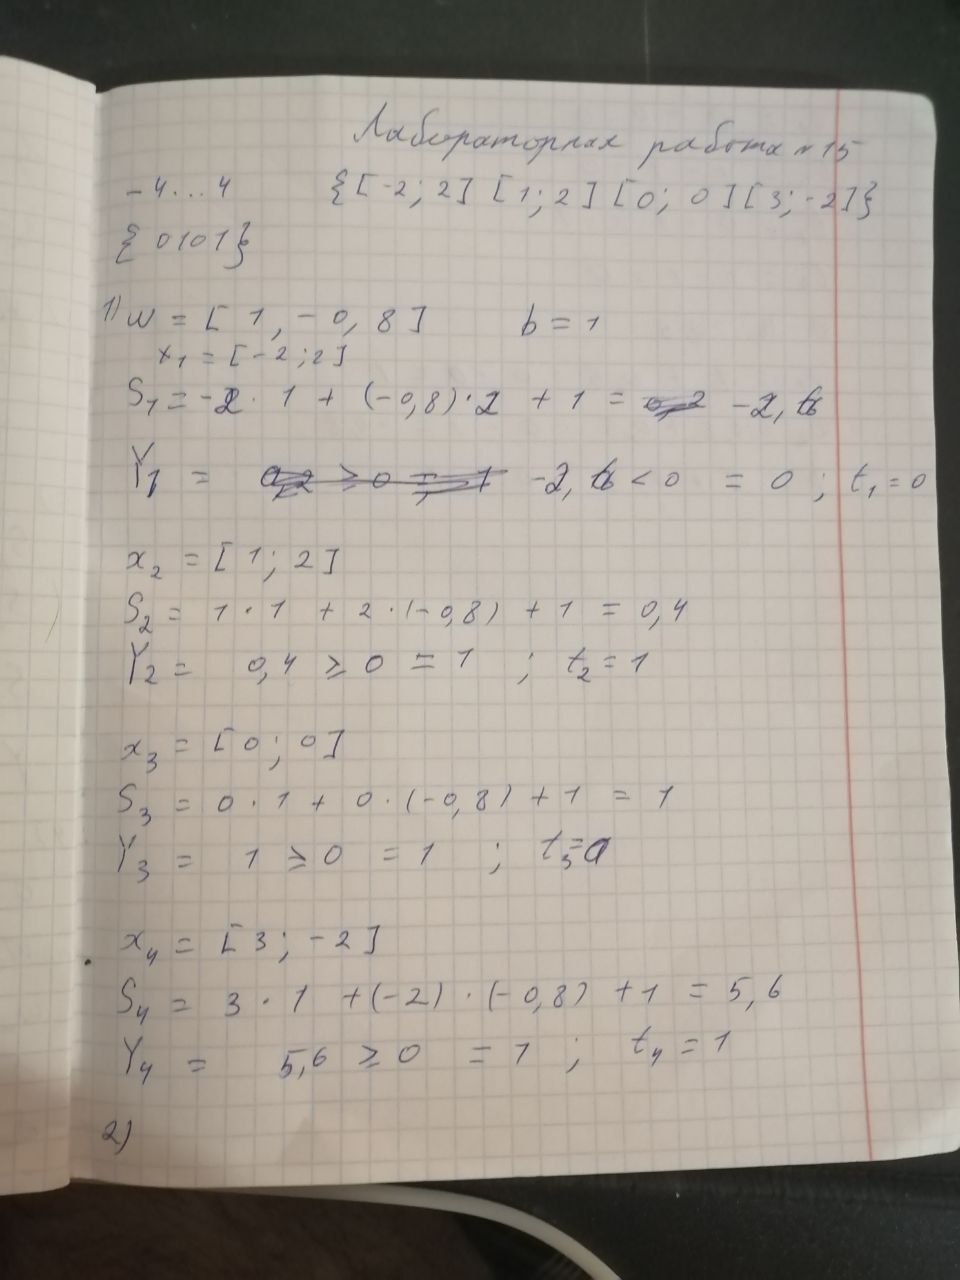 Лабораторная работа №15
-4...4 {[-2; 2] [1; 2] [0; 0] [3; -2]}
{0101}
1) w = [1, -0,8] b = 1
x₁ = [-2; 2]
S₁ = -2 · 1 + (-0,8) · 2 + 1 = -2,6
Y₁ = -2,6 < 0 = 0 ; t₁ = 0
x₂ = [1; 2]
S₂ = 1 · 1 + 2 · (-0,8) + 1 = 0,4
Y₂ = 0,4 ≥ 0 = 1 ; t₂ = 1
x₃ = [0; 0]
S₃ = 0 · 1 + 0 · (-0,8) + 1 = 1
Y₃ = 1 ≥ 0 = 1 ; t₃ = 0
x₄ = [3; -2]
S₄ = 3 · 1 + (-2) · (-0,8) + 1 = 5,6
Y₄ = 5,6 ≥ 0 = 1 ; t₄ = 1
2)